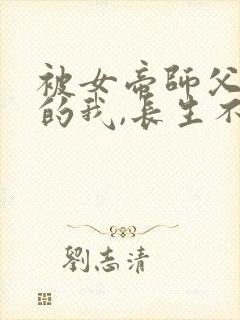 被女帝師父
的我,長生不
劉志清